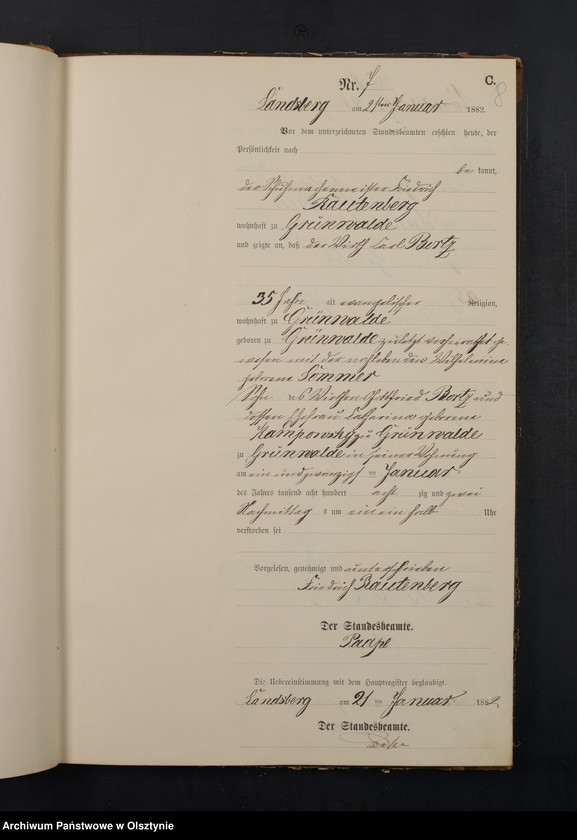 C.
8
Nr. 7
Landsberg am 21ten Januar 1882.
Vor dem unterzeichneten Standesbeamten erschien heute, der
Persönlichkeit nach
be kannt,
der Schuhmachermeister Friedrich
Rautenberg
wohnhaft zu Grünwalde
und zeigte an, daß der Wirth Carl Bortz
35 Jahr alt evangelischer Religion,
wohnhaft zu Grünwalde
geboren zu Grünwalde zuletzt verheirathet ge-
wesen mit der nachlebenden Wilhelmine
geborene Sommer
Sohn des Wirthen Gottfried Bortz und
dessen Ehefrau Catharina geborene
Kamporosky zu Grünwalde
zu Grünwalde in seiner Wohnung
am ein und zwanzigsten Januar
des Jahres tausend acht hundert acht zig und zwei
Nachmittag s um ein ein halb Uhr
verstorben sei
Vorgelesen, genehmigt und unterschrieben
Friedrich Rautenberg
Der Standesbeamte.
Paape
Die Uebereinstimmung mit dem Hauptregister beglaubigt.
Landsberg am 21 ten Januar 1882.
Der Standesbeamte.
Archiwum Państwowe w Olsztynie